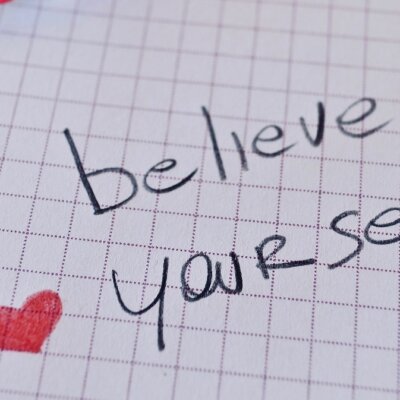 believe
yourse